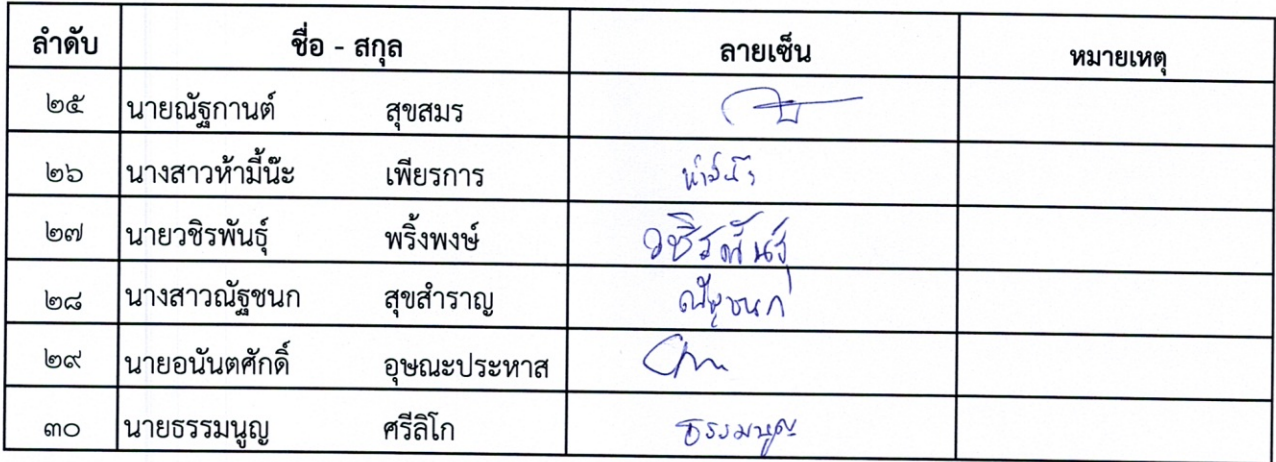 ลำดับ ชื่อ - สกุล ลายเซ็น หมายเหตุ
๒๕ นายณัฐกานต์ สุขสมร
๒๖ นางสาวห้ามี้น๊ะ เพียรการ
๒๗ นายวชิรพันธุ์ พริ้งพงษ์ วชิรพันธุ์
๒๘ นางสาวณัฐชนก สุขสำราญ ณัฐชนก
๒๙ นายอนันตศักดิ์ อุษณะประหาส
๓๐ นายธรรมนูญ ศรีลิโก ธรรมนูญ